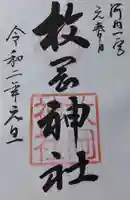 河内一宮
元春日
枚岡神社
令和二年元旦